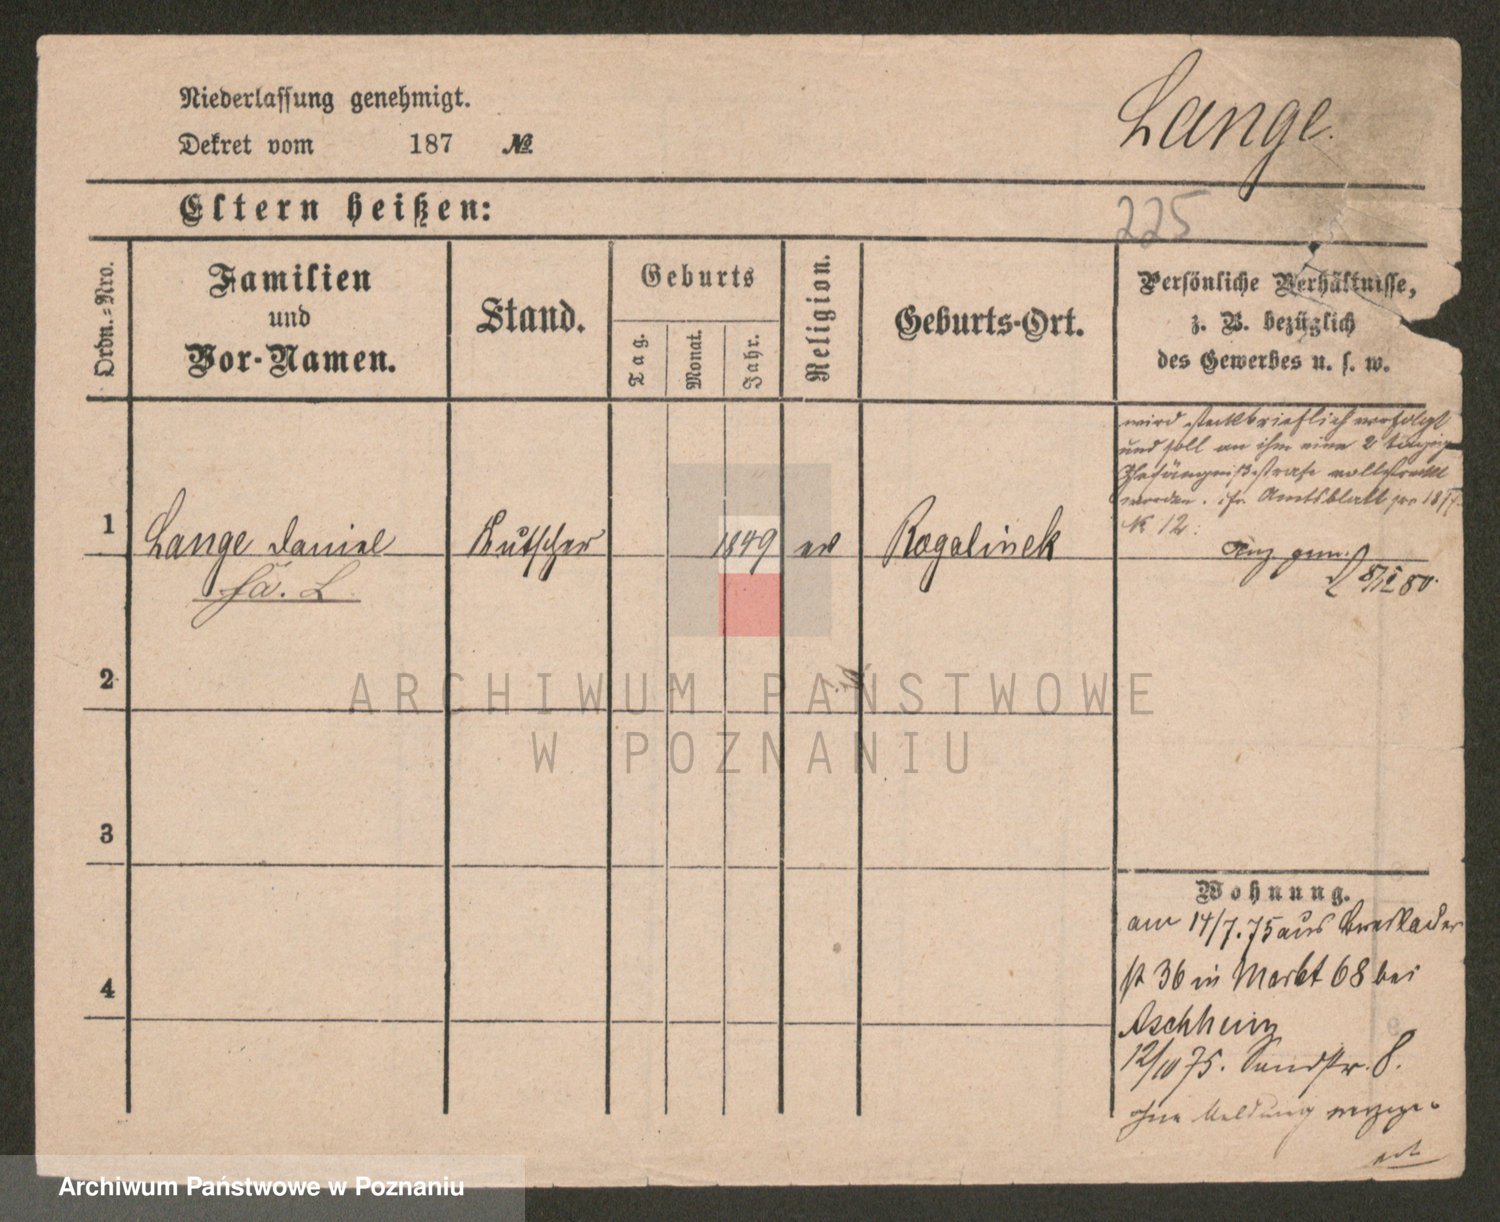 Niederlassung genehmigt.
Dekret vom 187 №.
Lange.
Eltern heißen:
225
Ordn.-Nro.
Familien
und
Vor-Namen.
Stand.
Geburts
Tag.
Monat.
Jahr.
Religion.
Geburts-Ort.
Persönliche Verhältnisse,
z. B. bezüglich
des Gewerbes u. s. w.
wird steckbrieflich verfolgt
und soll an ihm eine 2 tägige
Gefängnißstrafe vollstreckt
werden. Amtsblatt pro 187
№ 12.
1 Lange Daniel Kutscher 1849 ev Rogalinek
80.
L.
2
3
4
Wohnung.
am 14/7.75 aus Breslauer
st 36 in Markt 68 bei
Aschheim
12/10 75. Sandstr. 8.
ohne Meldung verzogen
ARCHIWUM PAŃSTWOWE
W POZNANIU
Archiwum Państwowe w Poznaniu